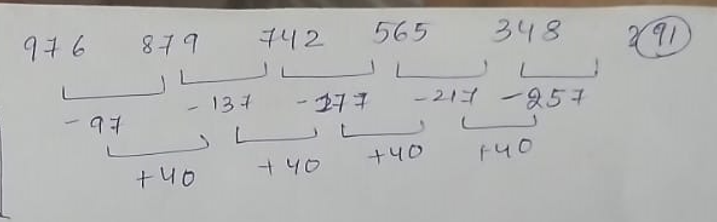 976 879 742 565 348 91
-97 -137 -177 -217 -257
+40 +40 +40 +40